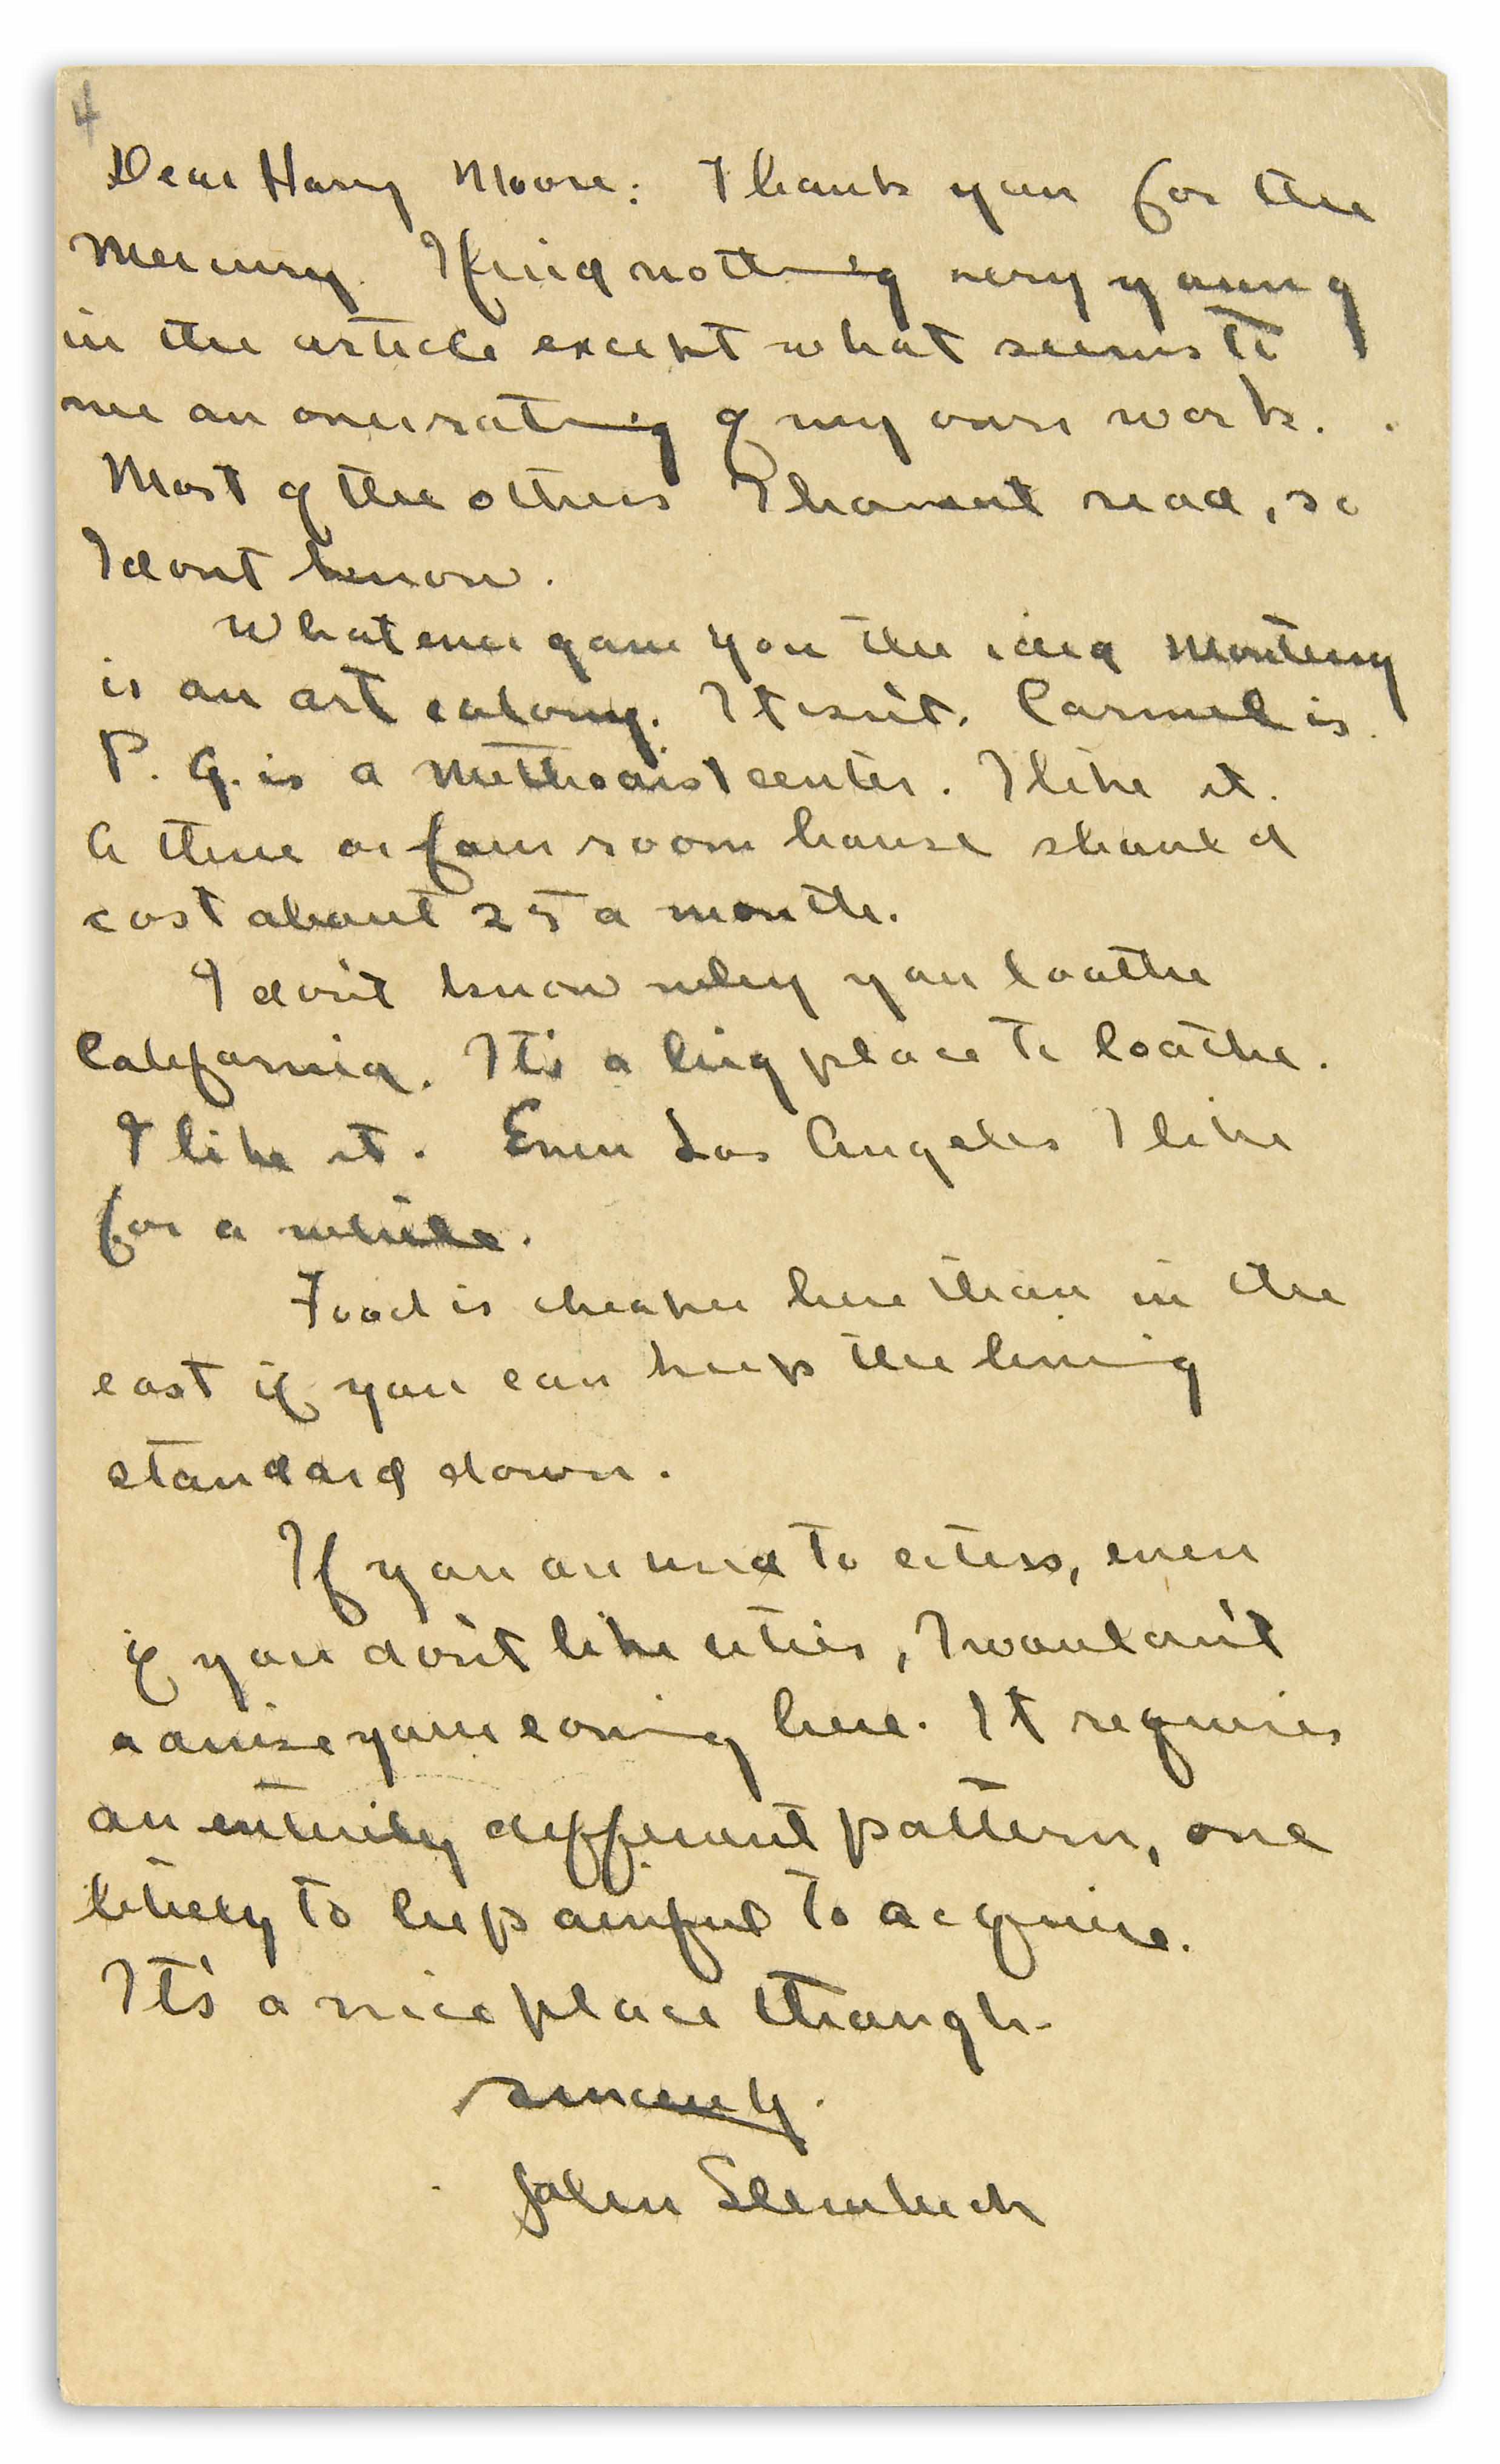 4
Dear Harry Moore: Thank you for the
Mercury. I find nothing very young
in the article except what seems to
me an overrating of my own work.
Most of the others I havent read, so
I dont know.
Whatever gave you the idea Monterey
is an art colony. It isn't. Carmel is.
P. G. is a Methodist center. I like it.
A three or four room house should
cost about 25 a month.
I don't know why you loathe
California. It's a big place to loathe.
I like it. Even Los Angeles I like
for a while.
Food is cheaper here than in the
east if you can keep the living
standard down.
If you are used to cities, even
if you don't like cities, I wouldn't
advise your coming here. It requires
an entirely different pattern, one
likely to be painful to acquire.
It's a nice place though.
Sincerely.
John Steinbeck